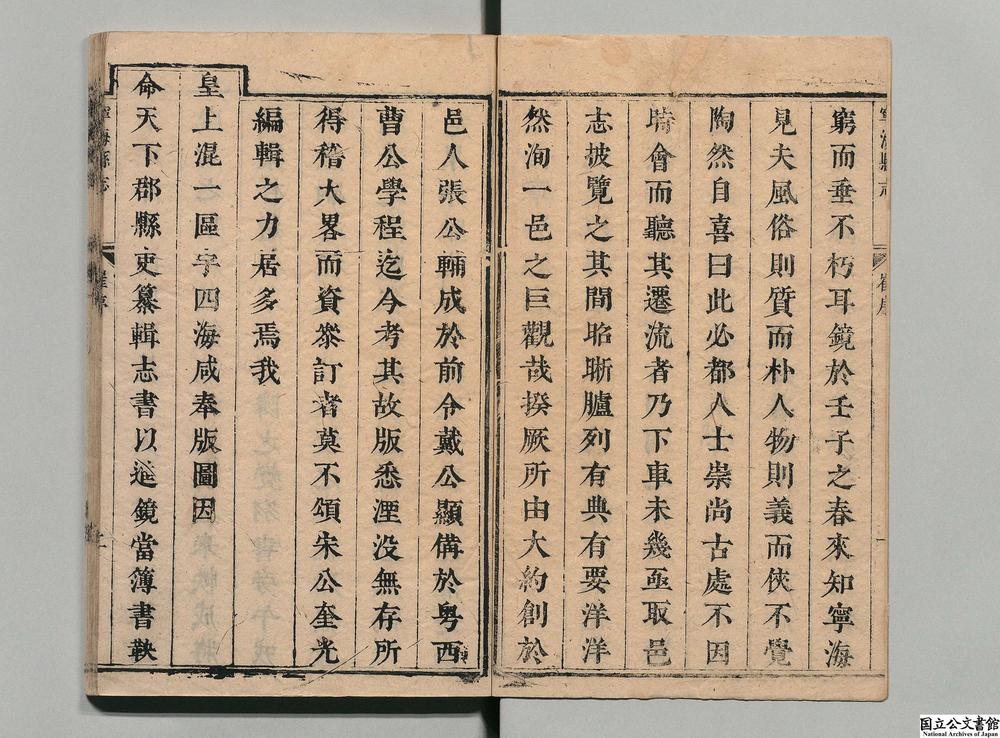 窮而垂不朽耳鏡於壬子之春來知寧海
見夫風俗則質而朴人物則義而俠不覺
陶然自喜曰此必都人士崇尚古處不因
時會而聽其遷流者乃下車未幾亟取邑
志披覽之其間昭晣臚列有典有要洋洋
然洵一邑之巨觀哉揆厥所由大約創於
邑人張公輔成於前令戴公顯備於粤西
曹公學程迄今考其故版悉湮没無存所
得稽大畧而資叅訂者莫不頌朱公奎光
編輯之力居多焉我
皇上混一區宇四海咸奉版圖因
命天下郡縣吏纂輯志書以進鏡當簿書鞅
寧海縣志
崔序
一
寧海縣志
崔序
国立公文書館
National Archives of Japan